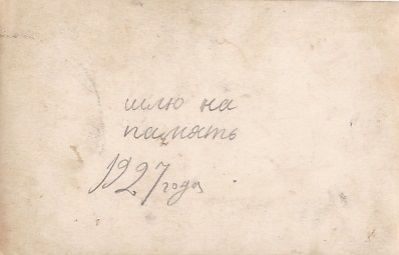 шлю на
память
1927 года